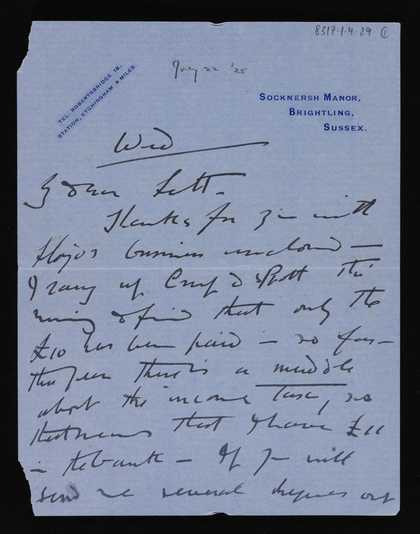 8317.1.4.29 ①
July 22 '25
TEL. ROBERTSBRIDGE 18.
STATION, ETCHINGHAM 4 MILES.
SOCKNERSH MANOR,
BRIGHTLING,
SUSSEX.
Wed
My dear
Thanks for yr with
business enclosed —
I rang up this
& find that only the
£10 has been paid — so far —
this year there is a muddle
about the income tax, so
that means that I have £11
in the bank — If you will
send me several cheques out